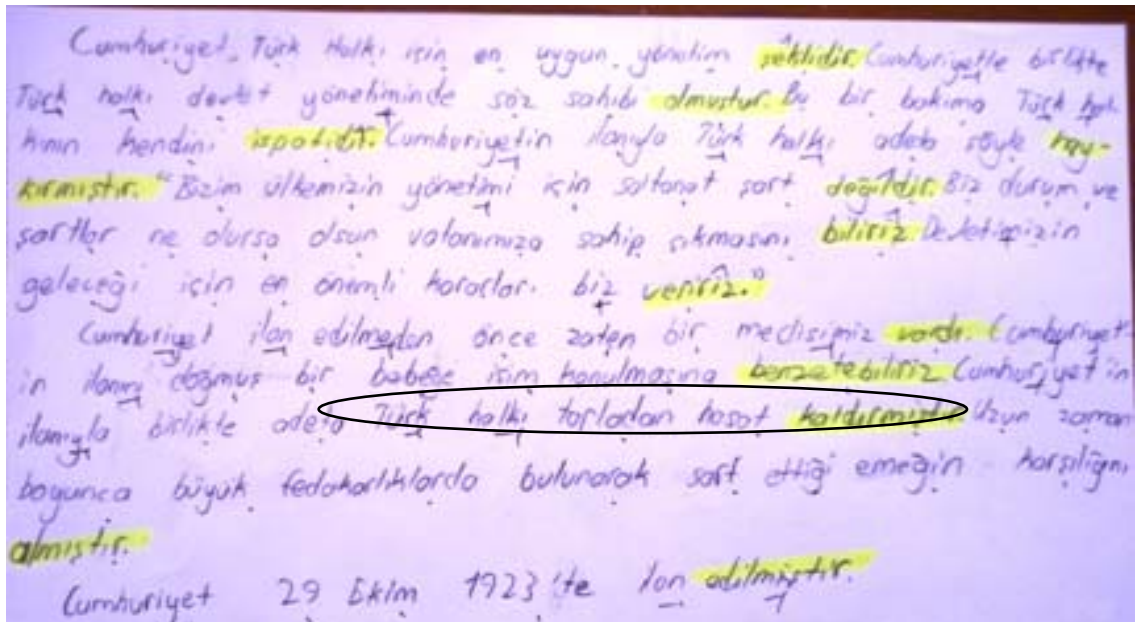 Cumhuriyet, Türk Halkı için en uygun yönetim şeklidir. Cumhuriyetle birlikte
Türk halkı devlet yönetiminde söz sahibi olmuştur. Bu bir bakıma Türk hal-
kının kendini ispatıdır. Cumhuriyetin ilanıyla Türk halkı adeta şöyle hay-
kırmıştır. "Bizim ülkemizin yönetimi için saltanat şart değildir. Biz durum ve
şartlar ne olursa olsun vatanımıza sahip çıkmasını biliriz. Devletimizin
geleceği için en önemli kararları biz veririz."
Cumhuriyet ilan edilmeden önce zaten bir meclisimiz vardı. Cumhuriyet-
in ilanını doğmuş bir bebeğe isim konulmasına benzetebiliriz. Cumhuriyet'in
ilanıyla birlikte adeta Türk halkı tarladan hasat kaldırmıştır. Uzun zaman
boyunca büyük fedakarlıklarda bulunarak sarf ettiği emeğin karşılığını
almıştır.
Cumhuriyet 29 Ekim 1923'te ilan edilmiştir.